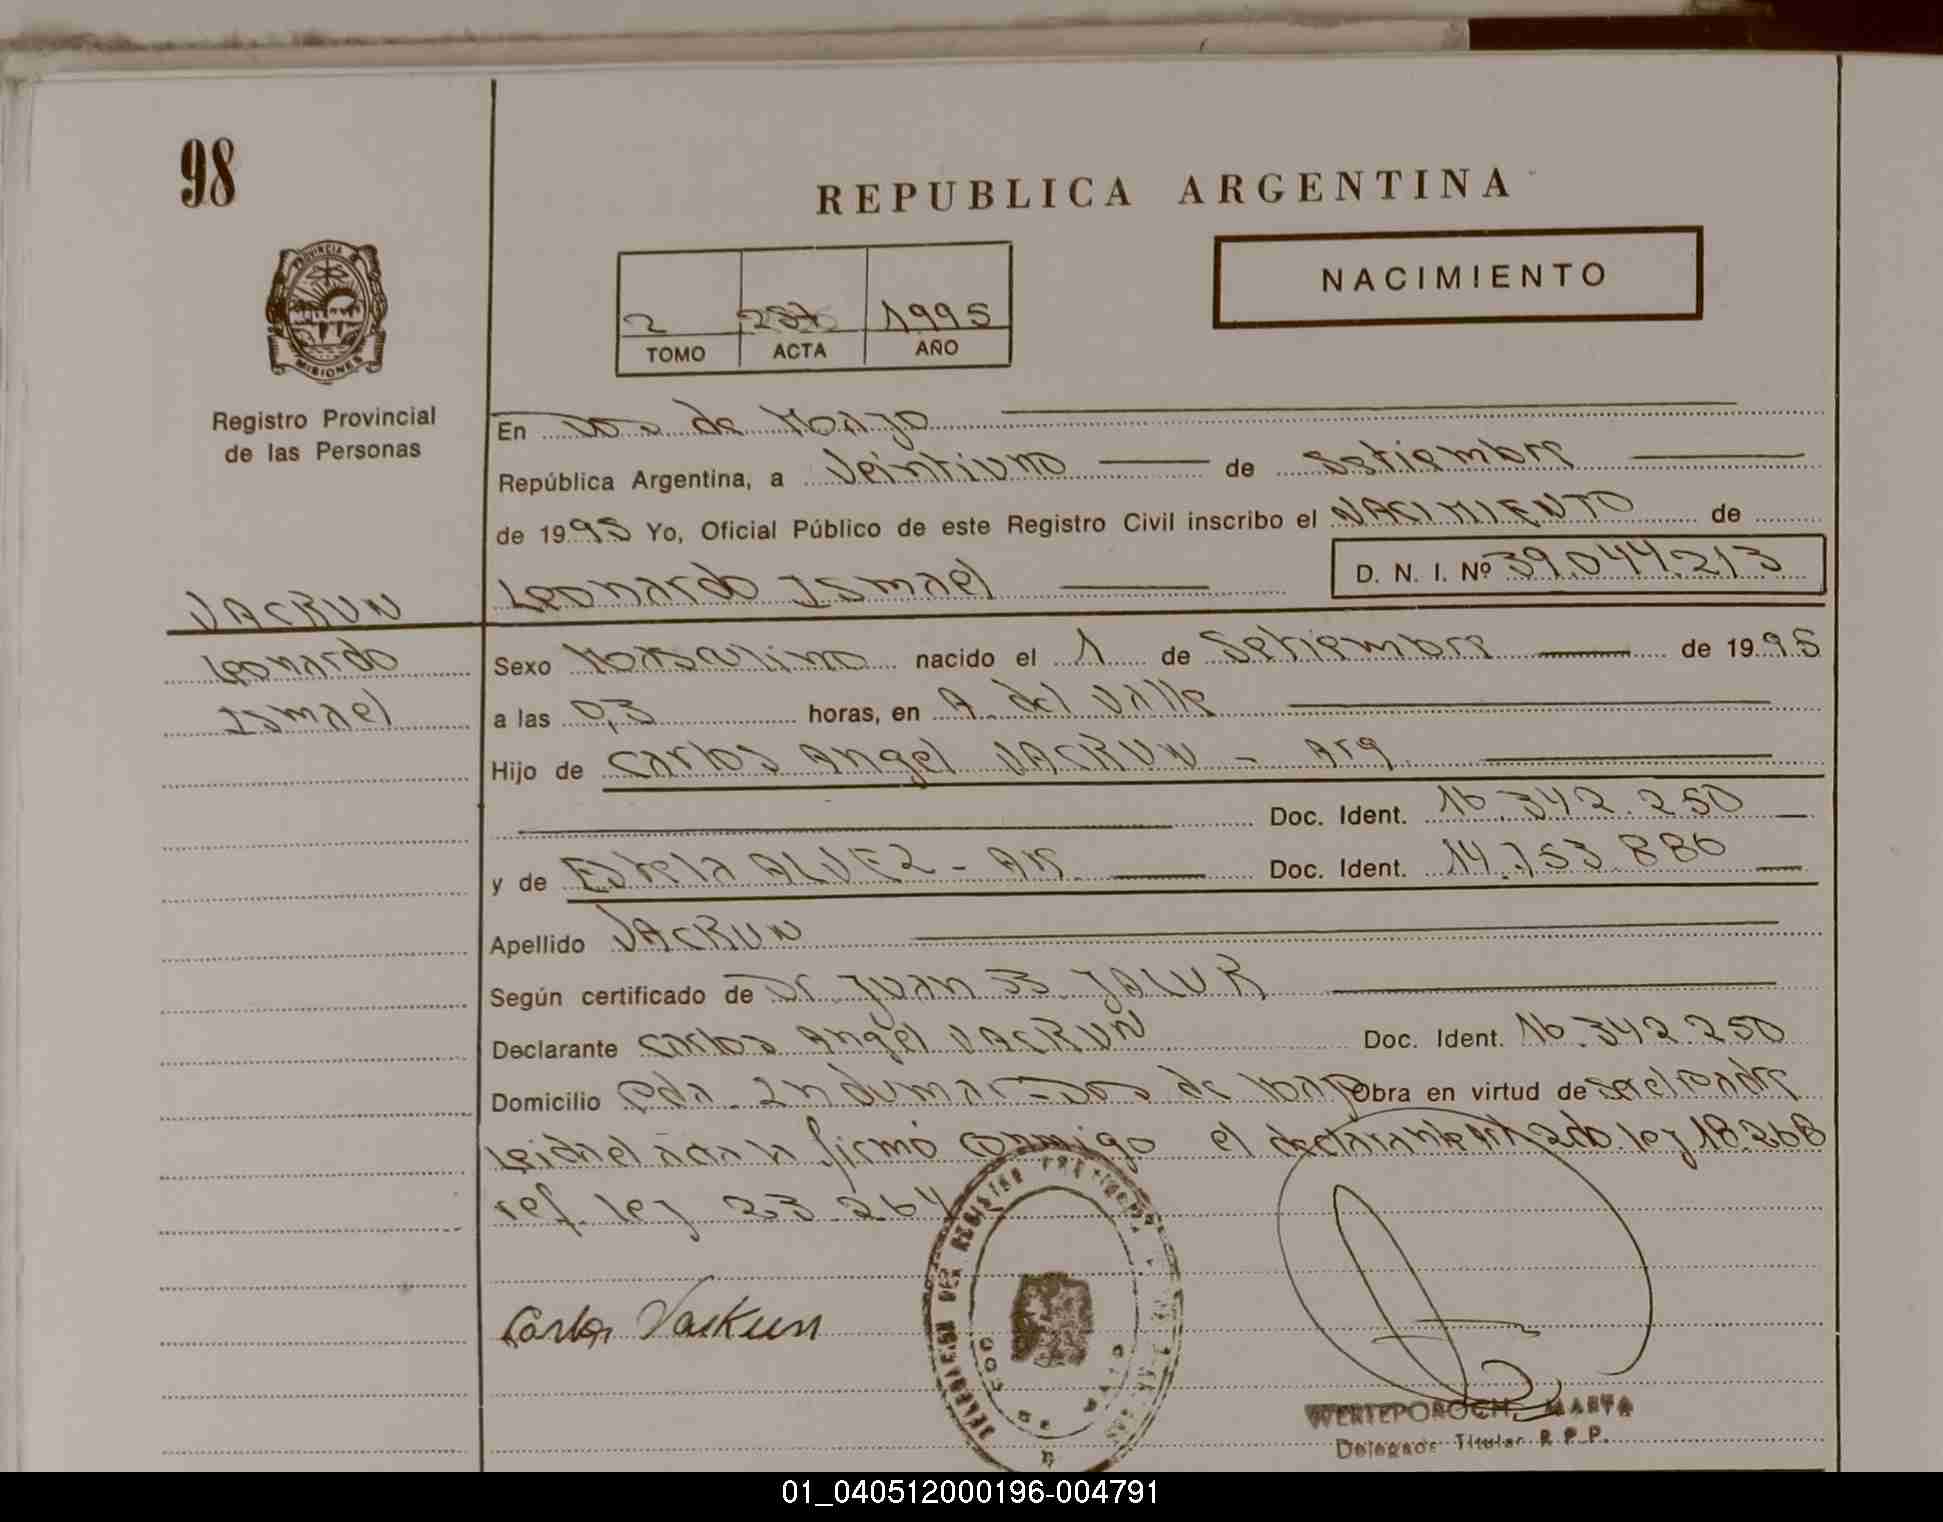 98
REPUBLICA ARGENTINA
NACIMIENTO
PROVINCIA
MISIONES
2 1995
TOMO ACTA AÑO
Registro Provincial
de las Personas
En Dos de Mayo
República Argentina, a Veintiuno de Setiembre
de 1995 Yo, Oficial Público de este Registro Civil inscribo el NACIMIENTO de
Leonardo Ismael D. N. I. Nº 39.044.213
VACRUN
Leonardo
Ismael
Sexo Masculino nacido el 1 de Setiembre de 1995
a las 0,3 horas, en A. del Valle
Hijo de Carlos Angel VACRUN - Arg
Doc. Ident. 16.342.250
y de Estela ALVEZ - Doc. Ident. 14.753.886
Apellido VACRUN
Según certificado de Dr. Juan JALUR
Declarante Carlos Angel VACRUN Doc. Ident. 16.342.250
Domicilio Dos de Mayo Obra en virtud de ser el padre
Leida el acta la firmó conmigo el declarante art 2do. ley 18.268
ref. ley 23.264
Carlos Vackun
DELEGACION DEL REGISTRO
WERTEPOROCH, MARTA
Delegado Titular R.P.P.
01_040512000196-004791